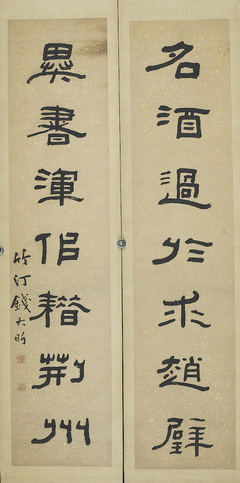 名酒過於求趙璧
異書渾佀借荊州
竹汀錢大昕